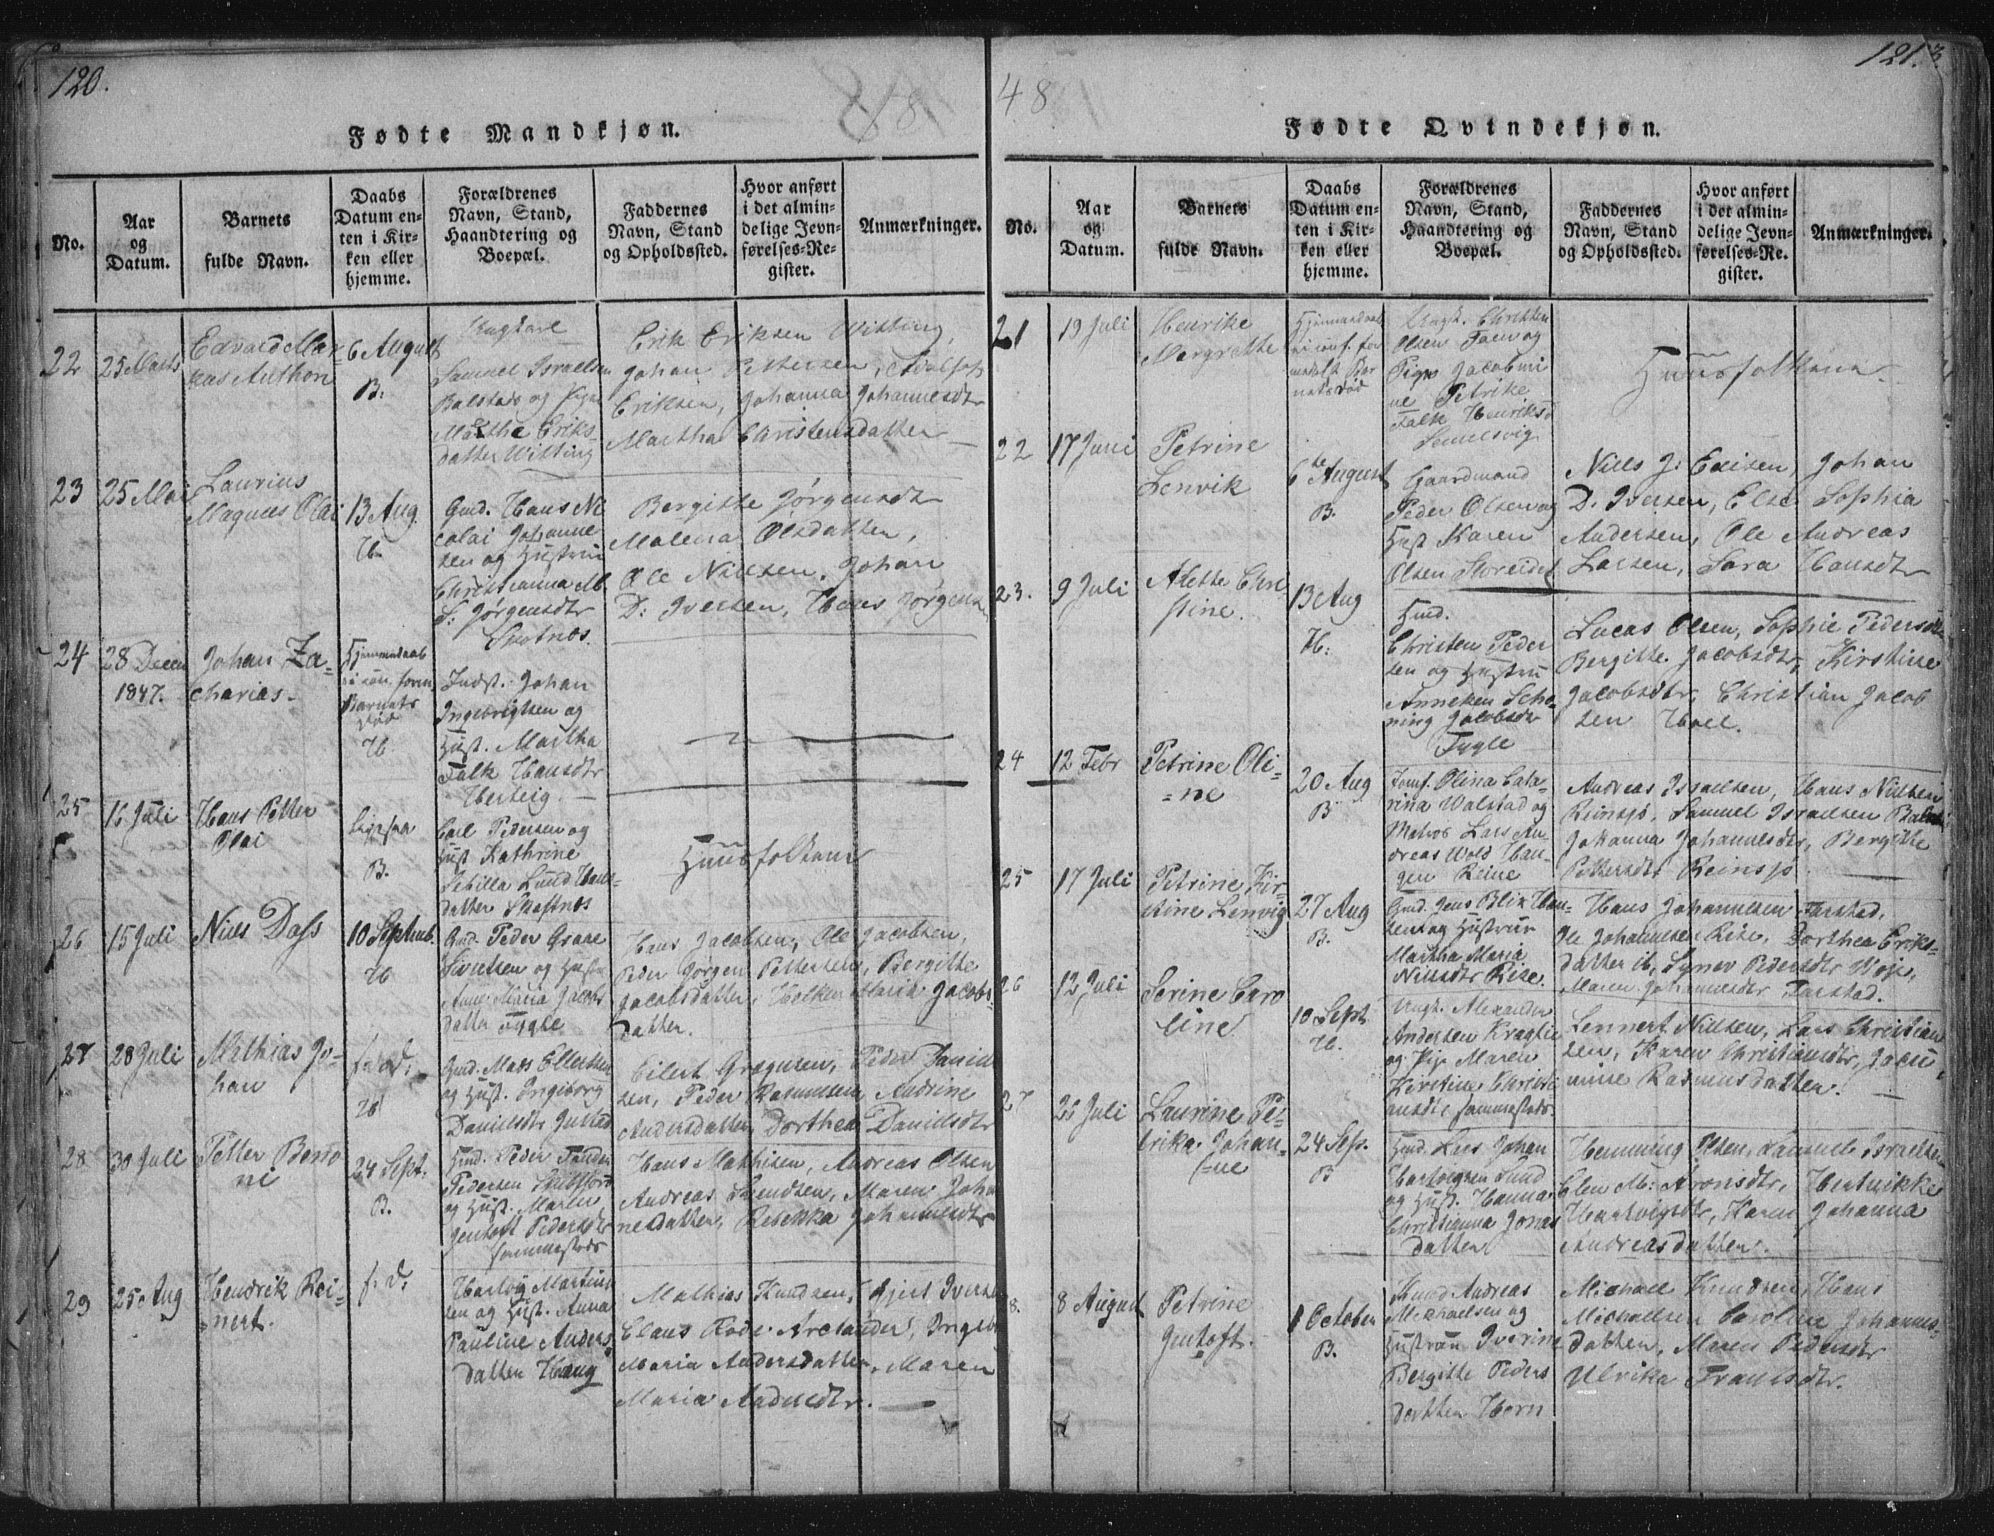 120.
18
48
121.
Fødte Mandkjøn.
No.
Aar
og
Datum.
Barnets
fulde Navn.
Daabs
Datum en-
ten i Kir-
ken eller
hjemme.
Forældrenes
Navn, Stand,
Haandtering og
Boepæl.
Faddernes
Navn, Stand
og Opholdssted.
Hvor anført
i det almin-
delige Jevn-
førelses-Re-
gister.
Anmærkninger.
22
25 Marts
Edvard Mar-
kus Anthon
6 August
B.
Ungkarl
Samuel Israelsen
Balstad og Pige
Marthe Eriks-
datter Witting
Erik Eriksen Witting,
Johan Pettersen, Adolf
Eriksen, Johanna Johannesdtr
Martha Christensdatter
23
25 Mai
Laurius
Magnus Olai
13 Aug.
H.
Gmd. Hans Ni-
colai Johanne-
sen og Hustrue
Christianna M.
S. Jørgensdtr
Bergitte Jørgensdtr
Malena Olsdatter,
Ole Nielsen, Johan
D: Iversen, Hans Jørgens
24
28 Decem
1847.
Johan Za-
charias
Hjemmedaab
Barnets
død
H.
Indst. Johan
Ingebrigtsen og
Hust. Martha
Falk Hansdtr
25
16 Juli
Hans Petter
Olai
B.
Carl Pedersen og
Hust Kathrine
Sebilla Lund Hans-
datter Skaftnes
Huusfolkene
26
15 Juli
Niels Dass
10 Septemb.
H
Gmd. Peder Graae
Sivertsen og Hustru
Anne Maria Jacobs
datter Tygle
Hans Jacobsen, Ole Jacobsen,
Peder Jørgen Pettersen, Bergitte
Jacobsdatter, Volken Marie Jacobs
datter.
27
28 Juli
Mathias Jo-
han
f. d.
H
Gmd. Mads Ellertsen
og Hust. Ingeborg
Danielsdtr Justad
Eilert Grægusen, Peder Daniel
sen, Peder Rasmussen, Andrine
Andersdatter, Dorthea Danielsdtr
28
30 Juli
Petter Beno
ni
24 Sept.
B.
Hmd. Peder Fonden
Pedersen
og Hust. Maren
Jentoft Pedersdtr
sammesteds
Hans Mathisen, Andreas Olsen
Andreas Svendsen, Maren Joha
nesdatter, Rebekka Johannesdtr
29
25 Aug
Hendrik Rei-
nert.
f. d.
Hartvig Martinus
sen og Hust. Anna
Pauline Anders
datter Haug
Mathias Knudsen, Gjert Iversen
Claus Rode Arctander, Ingeb
Maria Andersdatter, Maren
Maria
Fødte Qvindekjøn.
No.
Aar
og
Datum.
Barnets
fulde Navn.
Daabs
Datum en-
ten i Kir-
ken eller
hjemme.
Forældrenes
Navn, Stand,
Haandtering og
Boepæl.
Faddernes
Navn, Stand
og Opholdssted.
Hvor anført
i det almin-
delige Jevn-
førelses-Re-
gister.
Anmærkninger.
21
19 Juli
Henrike
Margrethe
Hjemmedaab
Ungk. Christen
Olsen Foen og
Pige Jacobmi
ne Petrike
Falk Henriksd
Huusfolkene
22
17 Juni
Petrine
Lenvik
6te August
B.
Gaardmand
Peder Olsen og
Hust Karen
Olsen Storeidet
Niels J. Edisen, Johan
D. Iversen, Else Sophia
Andersen, Ole Andreas
Larsen, Sara Hansdtr
23.
9 Juli
Alette Chri
stine.
13 Aug
H:
Hmd.
Christen Peder
sen og Hustru
Anneken Sche
ning Jacobsdtr
Tygle
Lucas Olsen, Sophie Pedersdtr
Bergitte Jacobsdtr, Kirstine
Jacobsdtr, Christian Jacob
sen Hoel.
24
12 Febr
Petrine Oli-
ne
20 Aug
B
Jomf. Olina Cata-
rina Walstad og
Matros Lars An-
dreas Wold Hau-
gen Reine
Andreas Israelsen, Hans Nielsen
Reinsjø, Samuel Israelsen Balstad
Johanna Johannesdtr, Bergitte
Pettersdtr Reinsjø
25
17 Juli
Petrine Kir-
stine Lenvig
27 Aug
B.
Gmd. Jens Blix Han-
sen og Hustrue
Martha Maria
Nilsdtr Rise.
Hans Johannesen Farstad,
Ole Johannesen Rise, Dorthea Eriks-
datter ib, Synev Pedersdtr Woje,
Maren Johannesdtr Farstad.
26
12 Juli
Serine Caro
line
10 Sept
H.
Ungk. Alexander
Andersen
og Pige Maren
Kirstine Christi
ansdtr sammesteds
Lennert Nielsen, Lars Christian
sen, Karen Christiansdtr, Jacu
mine Rasmusdatter.
27
26 Juli
Laurine Pe-
trika Johan-
ne
24 Sep.
B
Hmd. Lars Johan
Hartvigsen Lund
og Hust. Hanna
Christianna Jonas
datter
Henning Olsen, Samuel Israelsen
Elen M: Aronsdtr, Hendrikke
Hartvigsdtr, Karen Johanna
Andreasdatter.
28.
8 August
Petrine
Jentoft.
1 October
B.
Knud Andreas
Michaelsen og
Hustrue Iverine
Bergitte Peders
datter Horn
Michael Knudsen, Hans
Michaelsen Caroline Johannes-
datter, Maren Pedersdtr
Ulrika Fransdtr.